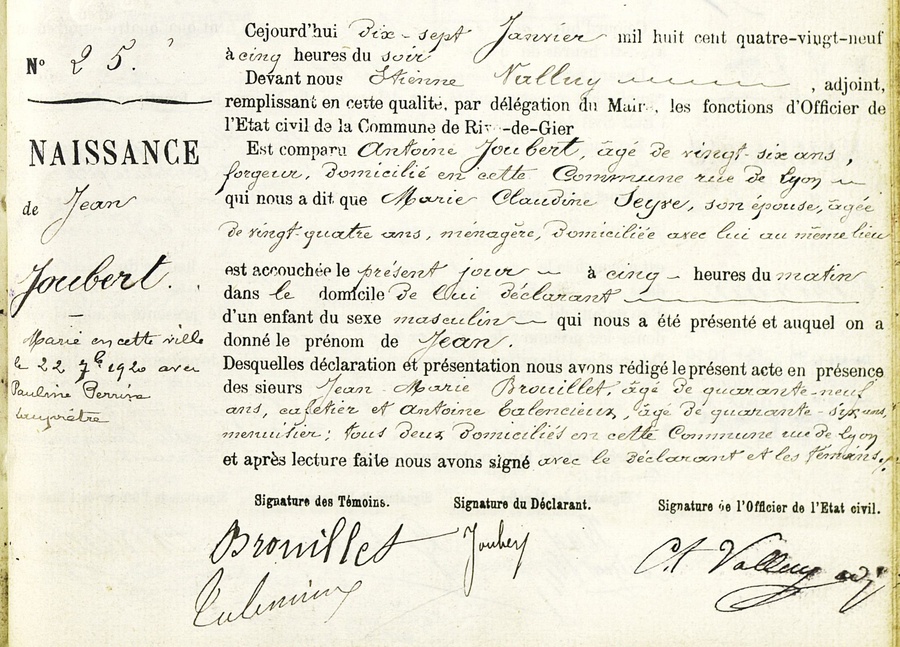 N° 25.
NAISSANCE
de Jean
Joubert.
Marié en cette ville
le 22 7bre 1920 avec
Pauline Perrine
Cejourd'hui Dix-sept Janvier mil huit cent quatre-vingt-neuf
à cinq heures du soir
Devant nous Etienne Valluy , adjoint,
remplissant en cette qualité, par délégation du Maire, les fonctions d'Officier de
l'Etat civil de la Commune de Rive-de-Gier
Est comparu Antoine Joubert, âgé de vingt-six ans,
forgeur, domicilié en cette Commune rue de Lyon
qui nous a dit que Marie Claudine Seyve, son épouse, âgée
de vingt-quatre ans, ménagère, domiciliée avec lui au même lieu
est accouchée le présent jour à cinq heures du matin
dans le domicile de lui déclarant
d'un enfant du sexe masculin qui nous a été présenté et auquel on a
donné le prénom de Jean.
Desquelles déclaration et présentation nous avons rédigé le présent acte en présence
des sieurs Jean-Marie Brouillet, âgé de quarante-neuf
ans, cafetier et Antoine Calencieux, âgé de quarante-six ans,
menuisier; tous deux domiciliés en cette Commune rue de Lyon
et après lecture faite nous avons signé avec le déclarant et les témoins.
Signature des Témoins. Signature du Déclarant. Signature de l'Officier de l'Etat civil.
Brouillet Joubert Ct Valluy adj